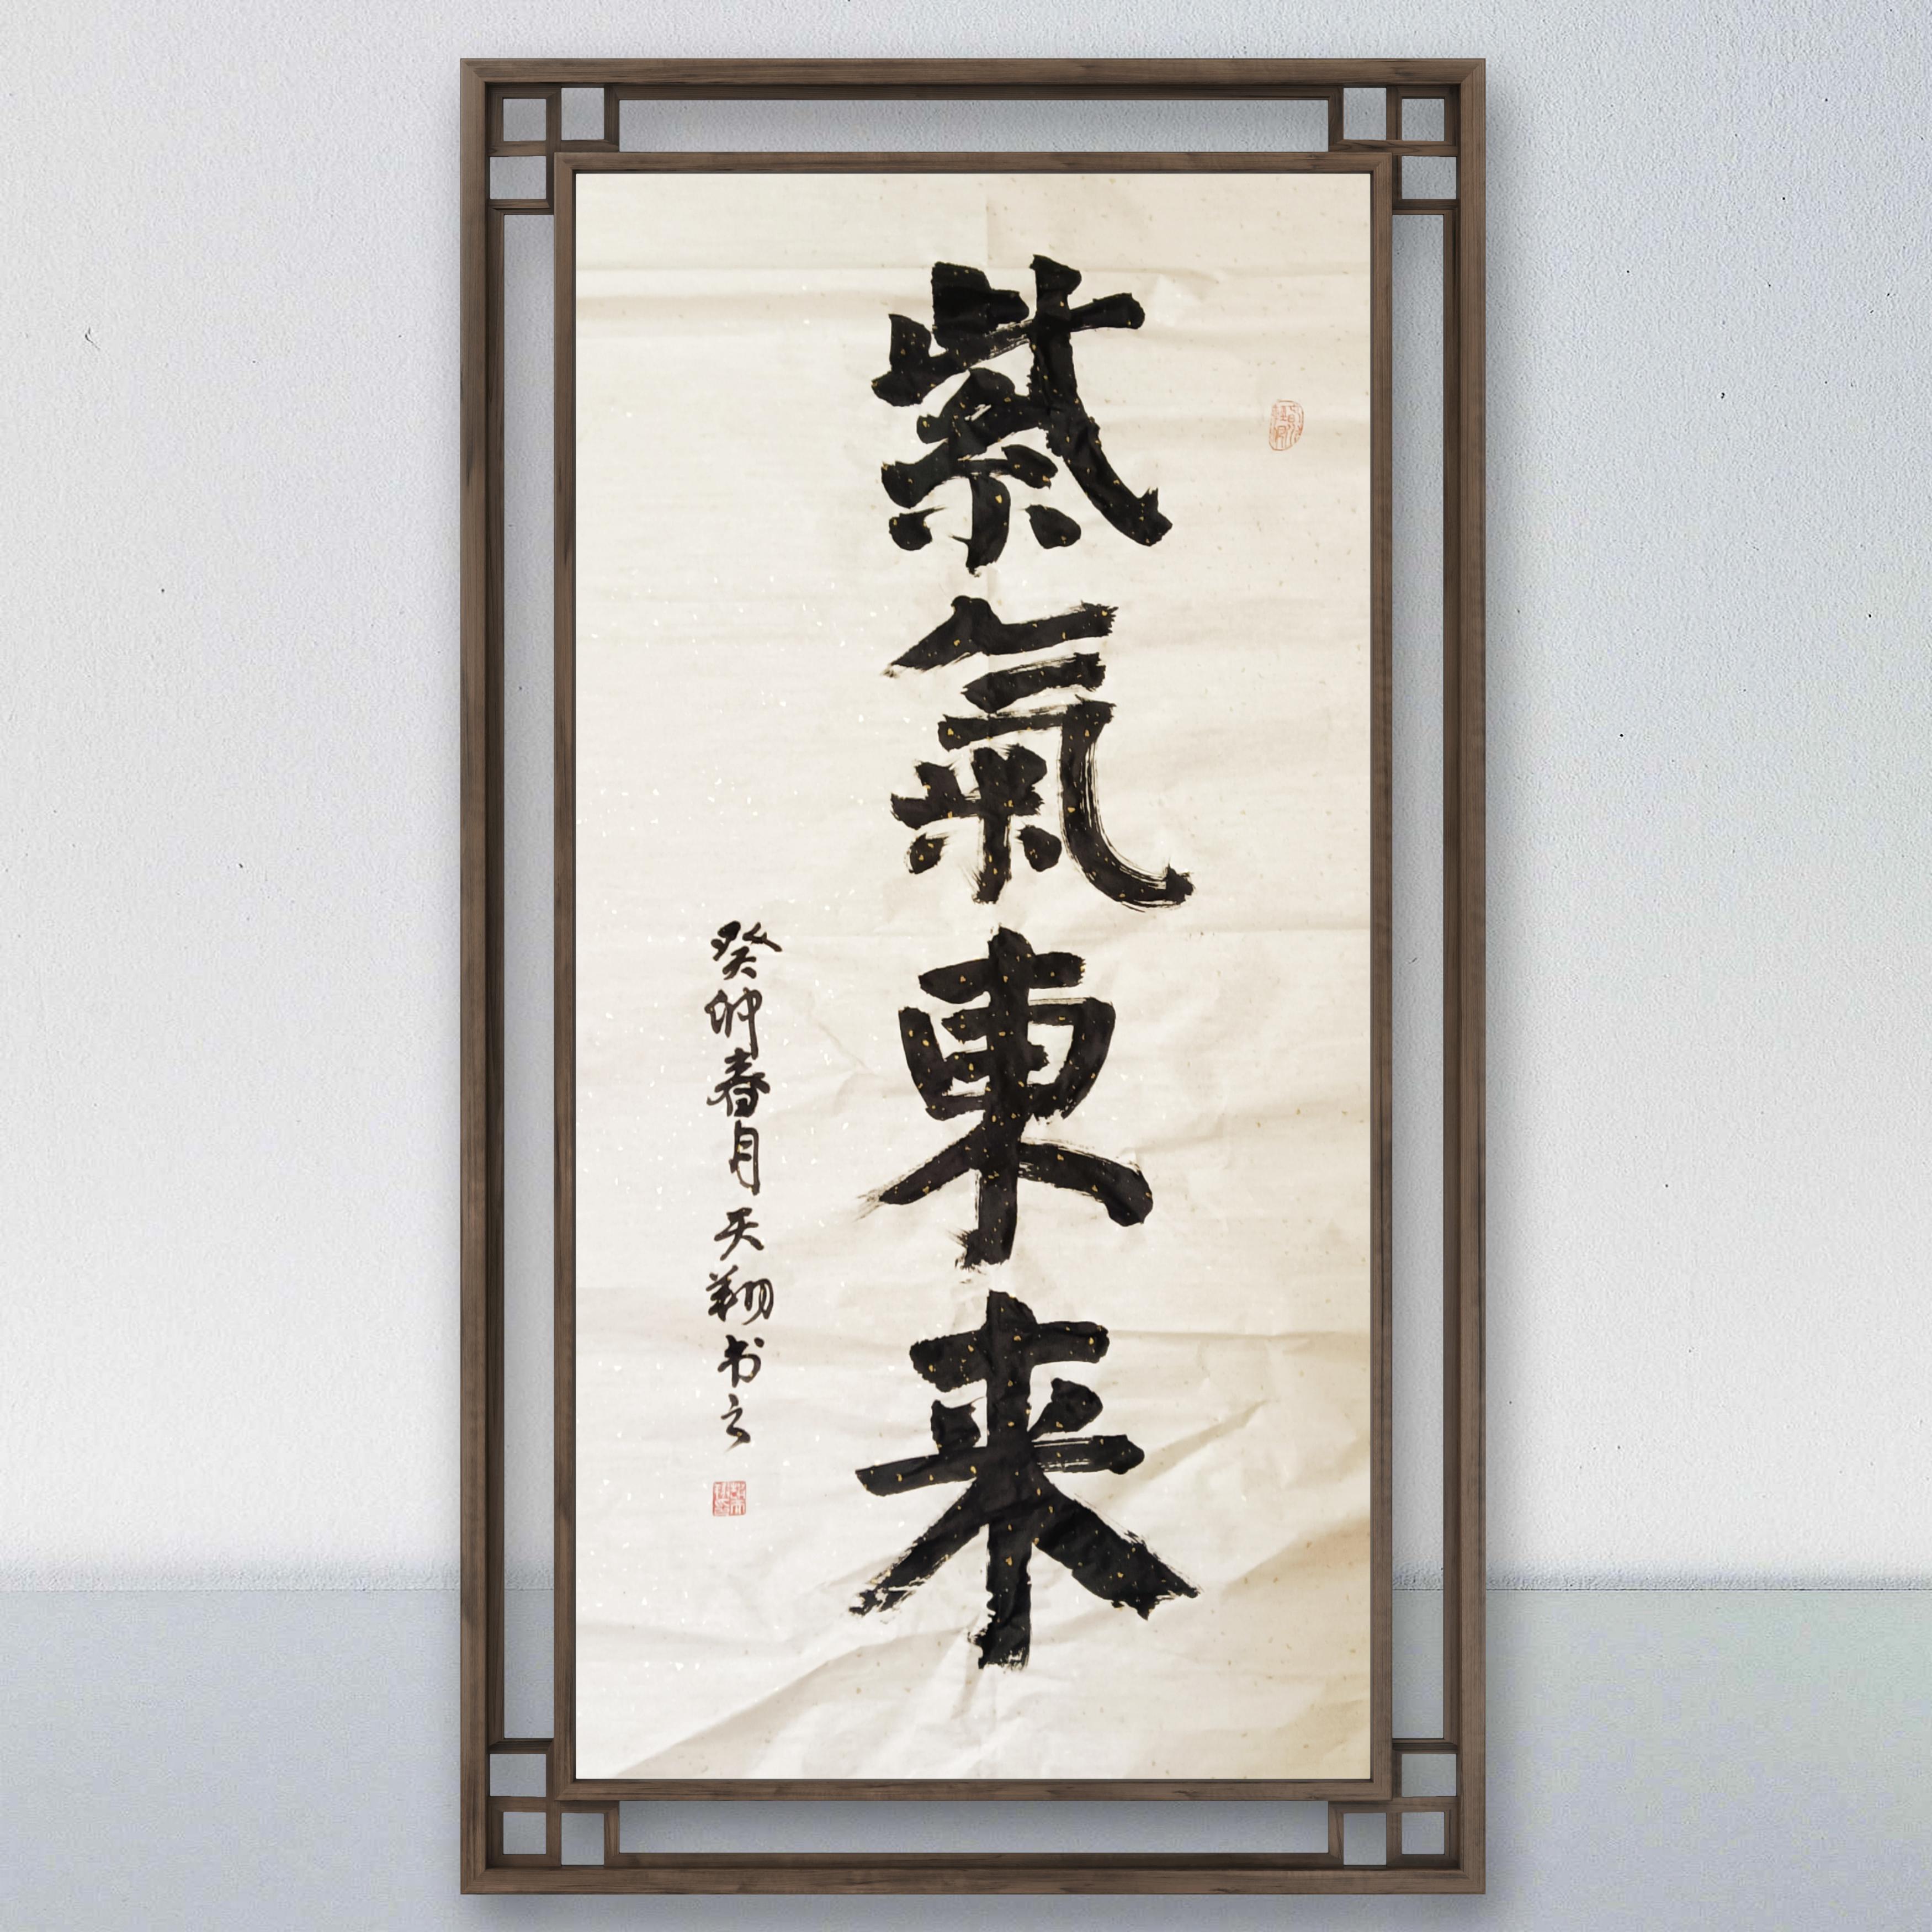 紫氣東来
癸卯春月天翔书之